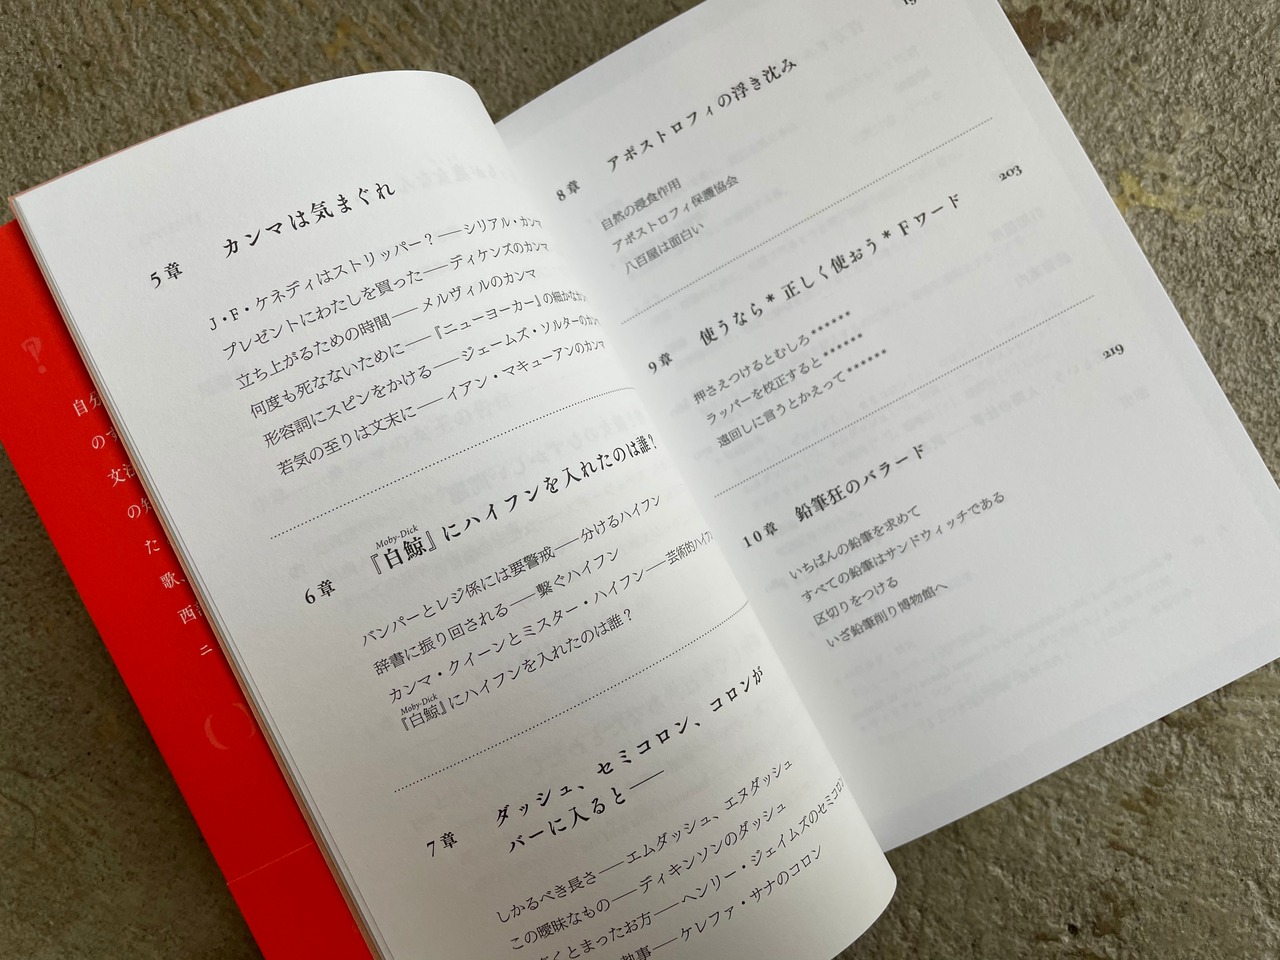 5章 カンマは気まぐれ
J・F・ケネディはストリッパー?——シリアル・カンマ
プレゼントにわたしを買った——ディケンズのカンマ
立ち上がるための時間——メルヴィルのカンマ
何度も死なないために——『ニューヨーカー』の細かなカンマ
形容詞にスピンをかける——ジェームズ・ソルターのカンマ
若気の至りは文末に——イアン・マキューアンのカンマ
Moby-Dick
6章 『白鯨』にハイフンを入れたのは誰?
バンパーとレジ係には要警戒——分けるハイフン
辞書に振り回される——繫ぐハイフン
カンマ・クイーンとミスター・ハイフン——芸術的ハイフン
Moby-Dick
『白鯨』にハイフンを入れたのは誰?
7章 ダッシュ、セミコロン、コロンが
バーに入ると——
しかるべき長さ——エムダッシュ、エヌダッシュ
この曖昧なもの——ディキンソンのダッシュ
くとまったお方——ヘンリー・ジェイムズのセミコロン
執事——ケレファ・サナのコロン
8章 アポストロフィの浮き沈み
自然の浸食作用
アポストロフィ保護協会
八百屋は面白い
203
9章 使うなら*正しく使おう*Fワード
押さえつけるとむしろ******
ラッパーを校正すると******
遠回しに言うとかえって******
219
10章 鉛筆狂のバラード
いちばんの鉛筆を求めて
すべての鉛筆はサンドウィッチである
区切りをつける
いざ鉛筆削り博物館へ
自分
のす
文法
の知
た
歌、
西
ニ
( )